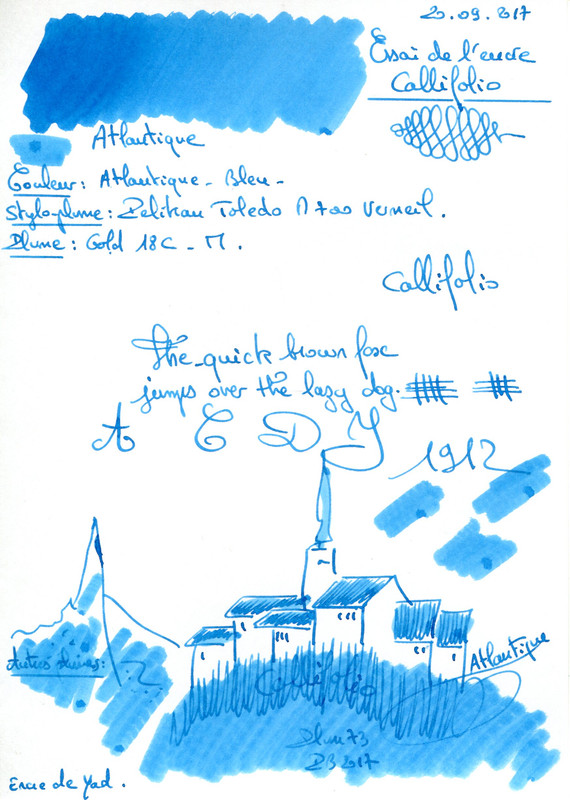 20.09.2017
Essai de l'encre
Callifolio
Atlantique
Couleur: Atlantique - Bleu -
Stylo-plume: Pelikan Toledo M 700 Vermeil.
Plume: Gold 18C - M.
Callifolio
The quick brown fox
jumps over the lazy dog.
A C D Y
1912
Atlantique
Autres
Callifolio
Plum73
Encre de Yad.